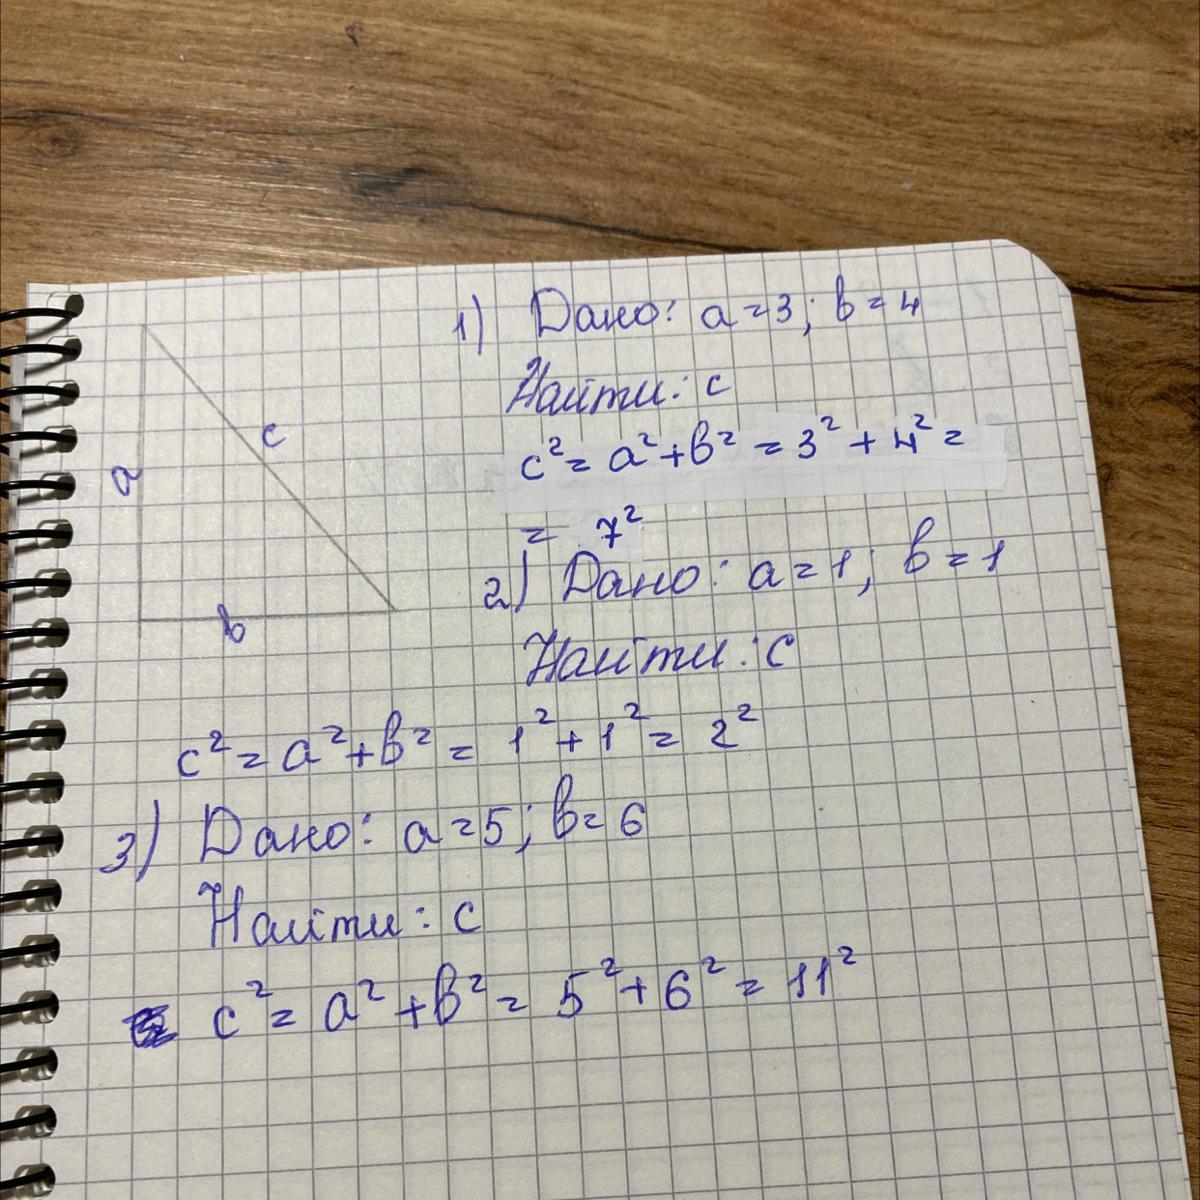 a
c
b
1) Дано: a=3; b=4
Найти: c
c²= a²+b² = 3² + 4² =
= 7²
2) Дано: a=1; b=1
Найти: c
c²= a²+b² = 1²+1² = 2²
3) Дано: a=5; b=6
Найти: c
c² = a² + b² = 5² + 6² = 11²